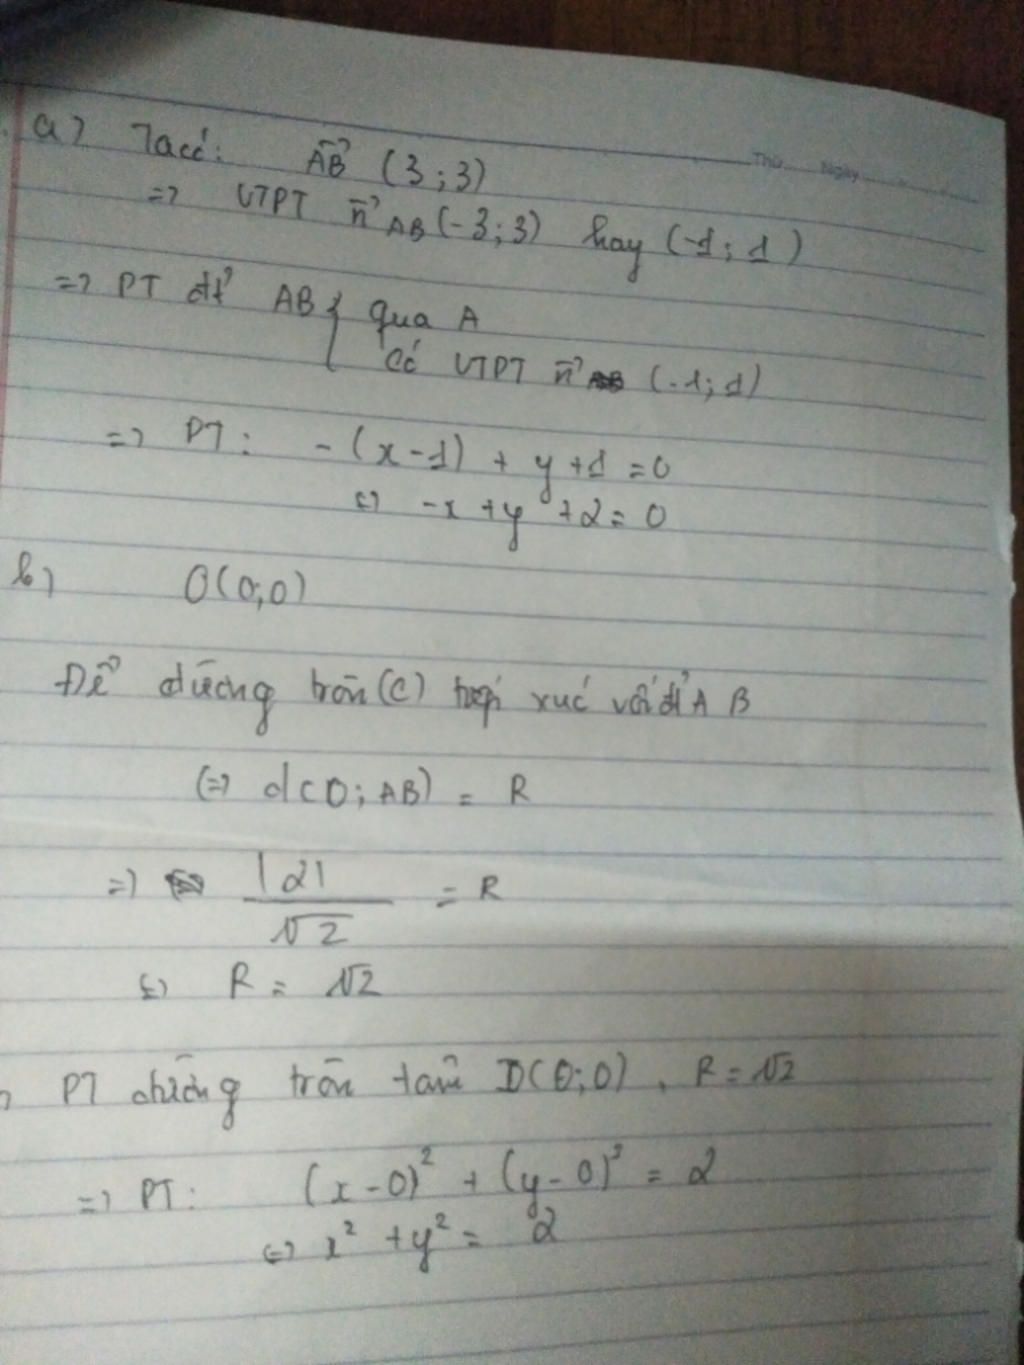 Thứ Ngày
a) Ta có: AB→ (3;3)
=> VTPT n→ AB (-3;3) hay (-1;1)
=> PT đt AB { qua A
có VTPT n→ (-1;1)
=> PT: -(x-1) + y+1 = 0
<=> -x + y + 2 = 0
b) O(0;0)
Để đường tròn (C) tiếp xúc với đt AB
<=> d(O; AB) = R
=> |2| / √2 = R
<=> R = √2
PT đường tròn tâm O(0;0), R = √2
=> PT: (x-0)² + (y-0)² = 2
<=> x² + y² = 2